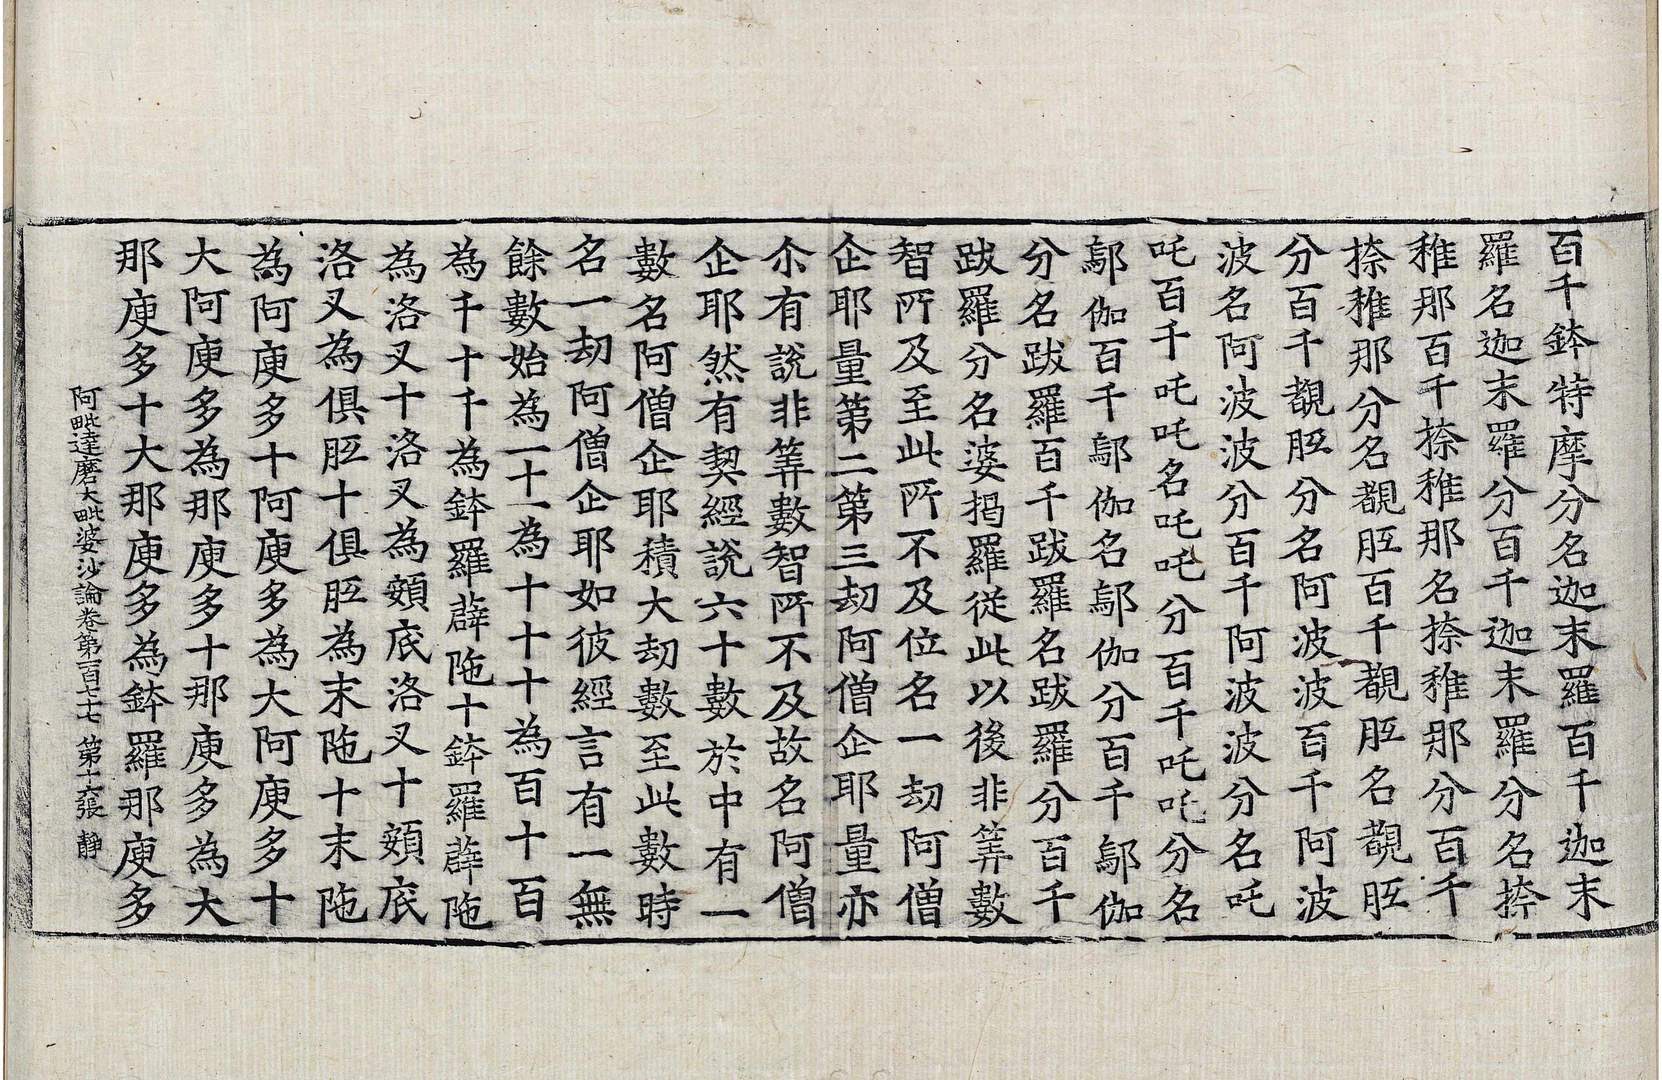 百千鉢特摩分名迦末羅百千迦末
羅名迦末羅分百千迦末羅分名捺
稚那百千捺稚那名捺稚那分百千
捺稚那分名覩胝百千覩胝名覩胝
分百千覩胝分名阿波波百千阿波
波名阿波波分百千阿波波分名吒
吒百千吒吒名吒吒分百千吒吒分名
鄔伽百千鄔伽名鄔伽分百千鄔伽
分名跋羅百千跋羅名跋羅分百千
跋羅分名婆揭羅從此以後非筭數
智所及至此所不及位名一劫阿僧
企耶量第二第三劫阿僧企耶量亦
尒有說非筭數智所不及故名阿僧
企耶然有契經說六十數於中有一
數名阿僧企耶積大劫數至此數時
名一劫阿僧企耶如彼經言有一無
餘數始為一十一為十十十為百十百
為千十千為鉢羅薜陁十鉢羅薜陁
為洛叉十洛叉為頞底洛叉十頞底
洛叉為俱胝十俱胝為末陁十末陁
為阿庾多十阿庾多為大阿庾多十
大阿庾多為那庾多十那庾多為大
那庾多十大那庾多為鉢羅那庾多
阿毗達磨大毗婆沙論卷第百七七 第十六張 靜